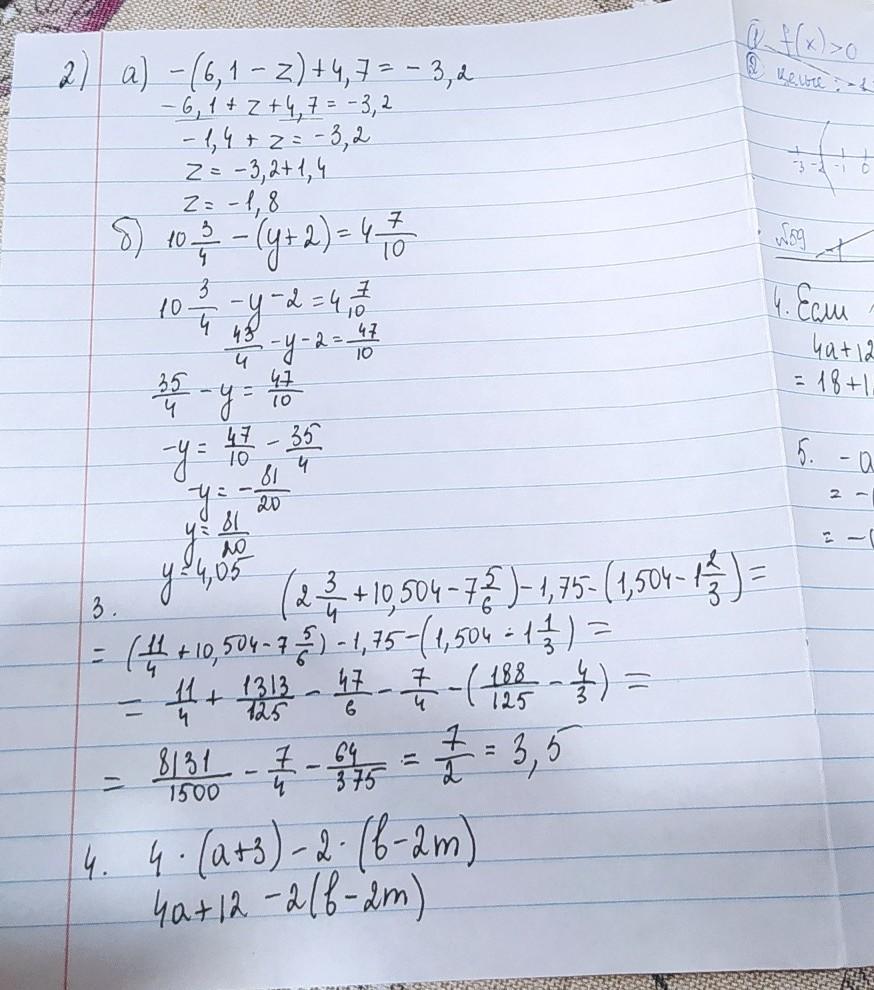 2) а) -(6,1 - z) + 4,7 = - 3,2
-6,1 + z + 4,7 = -3,2
-1,4 + z = -3,2
z = -3,2+1,4
z = -1,8
б) 10 3/4 - (y+2) = 4 7/10
10 3/4 - y - 2 = 4 7/10
43/4 - y - 2 = 47/10
35/4 - y = 47/10
-y = 47/10 - 35/4
-y = - 81/20
y = 81/20
y = 4,05
3. (2 3/4 + 10,504 - 7 5/6) - 1,75 - (1,504 - 1 2/3) =
= (11/4 + 10,504 - 7 5/6) - 1,75 - (1,504 - 1 1/3) =
= 11/4 + 1313/125 - 47/6 - 7/4 - (188/125 - 4/3) =
= 8131/1500 - 7/4 - 64/375 = 7/2 = 3,5
4. 4 · (a+3) - 2 · (b - 2m)
4a + 12 - 2(b - 2m)
f(x) > 0
целые :
-3 -2 -1 0
№59
4. Если
4a+12
= 18+1
5. - a
= -
= -(